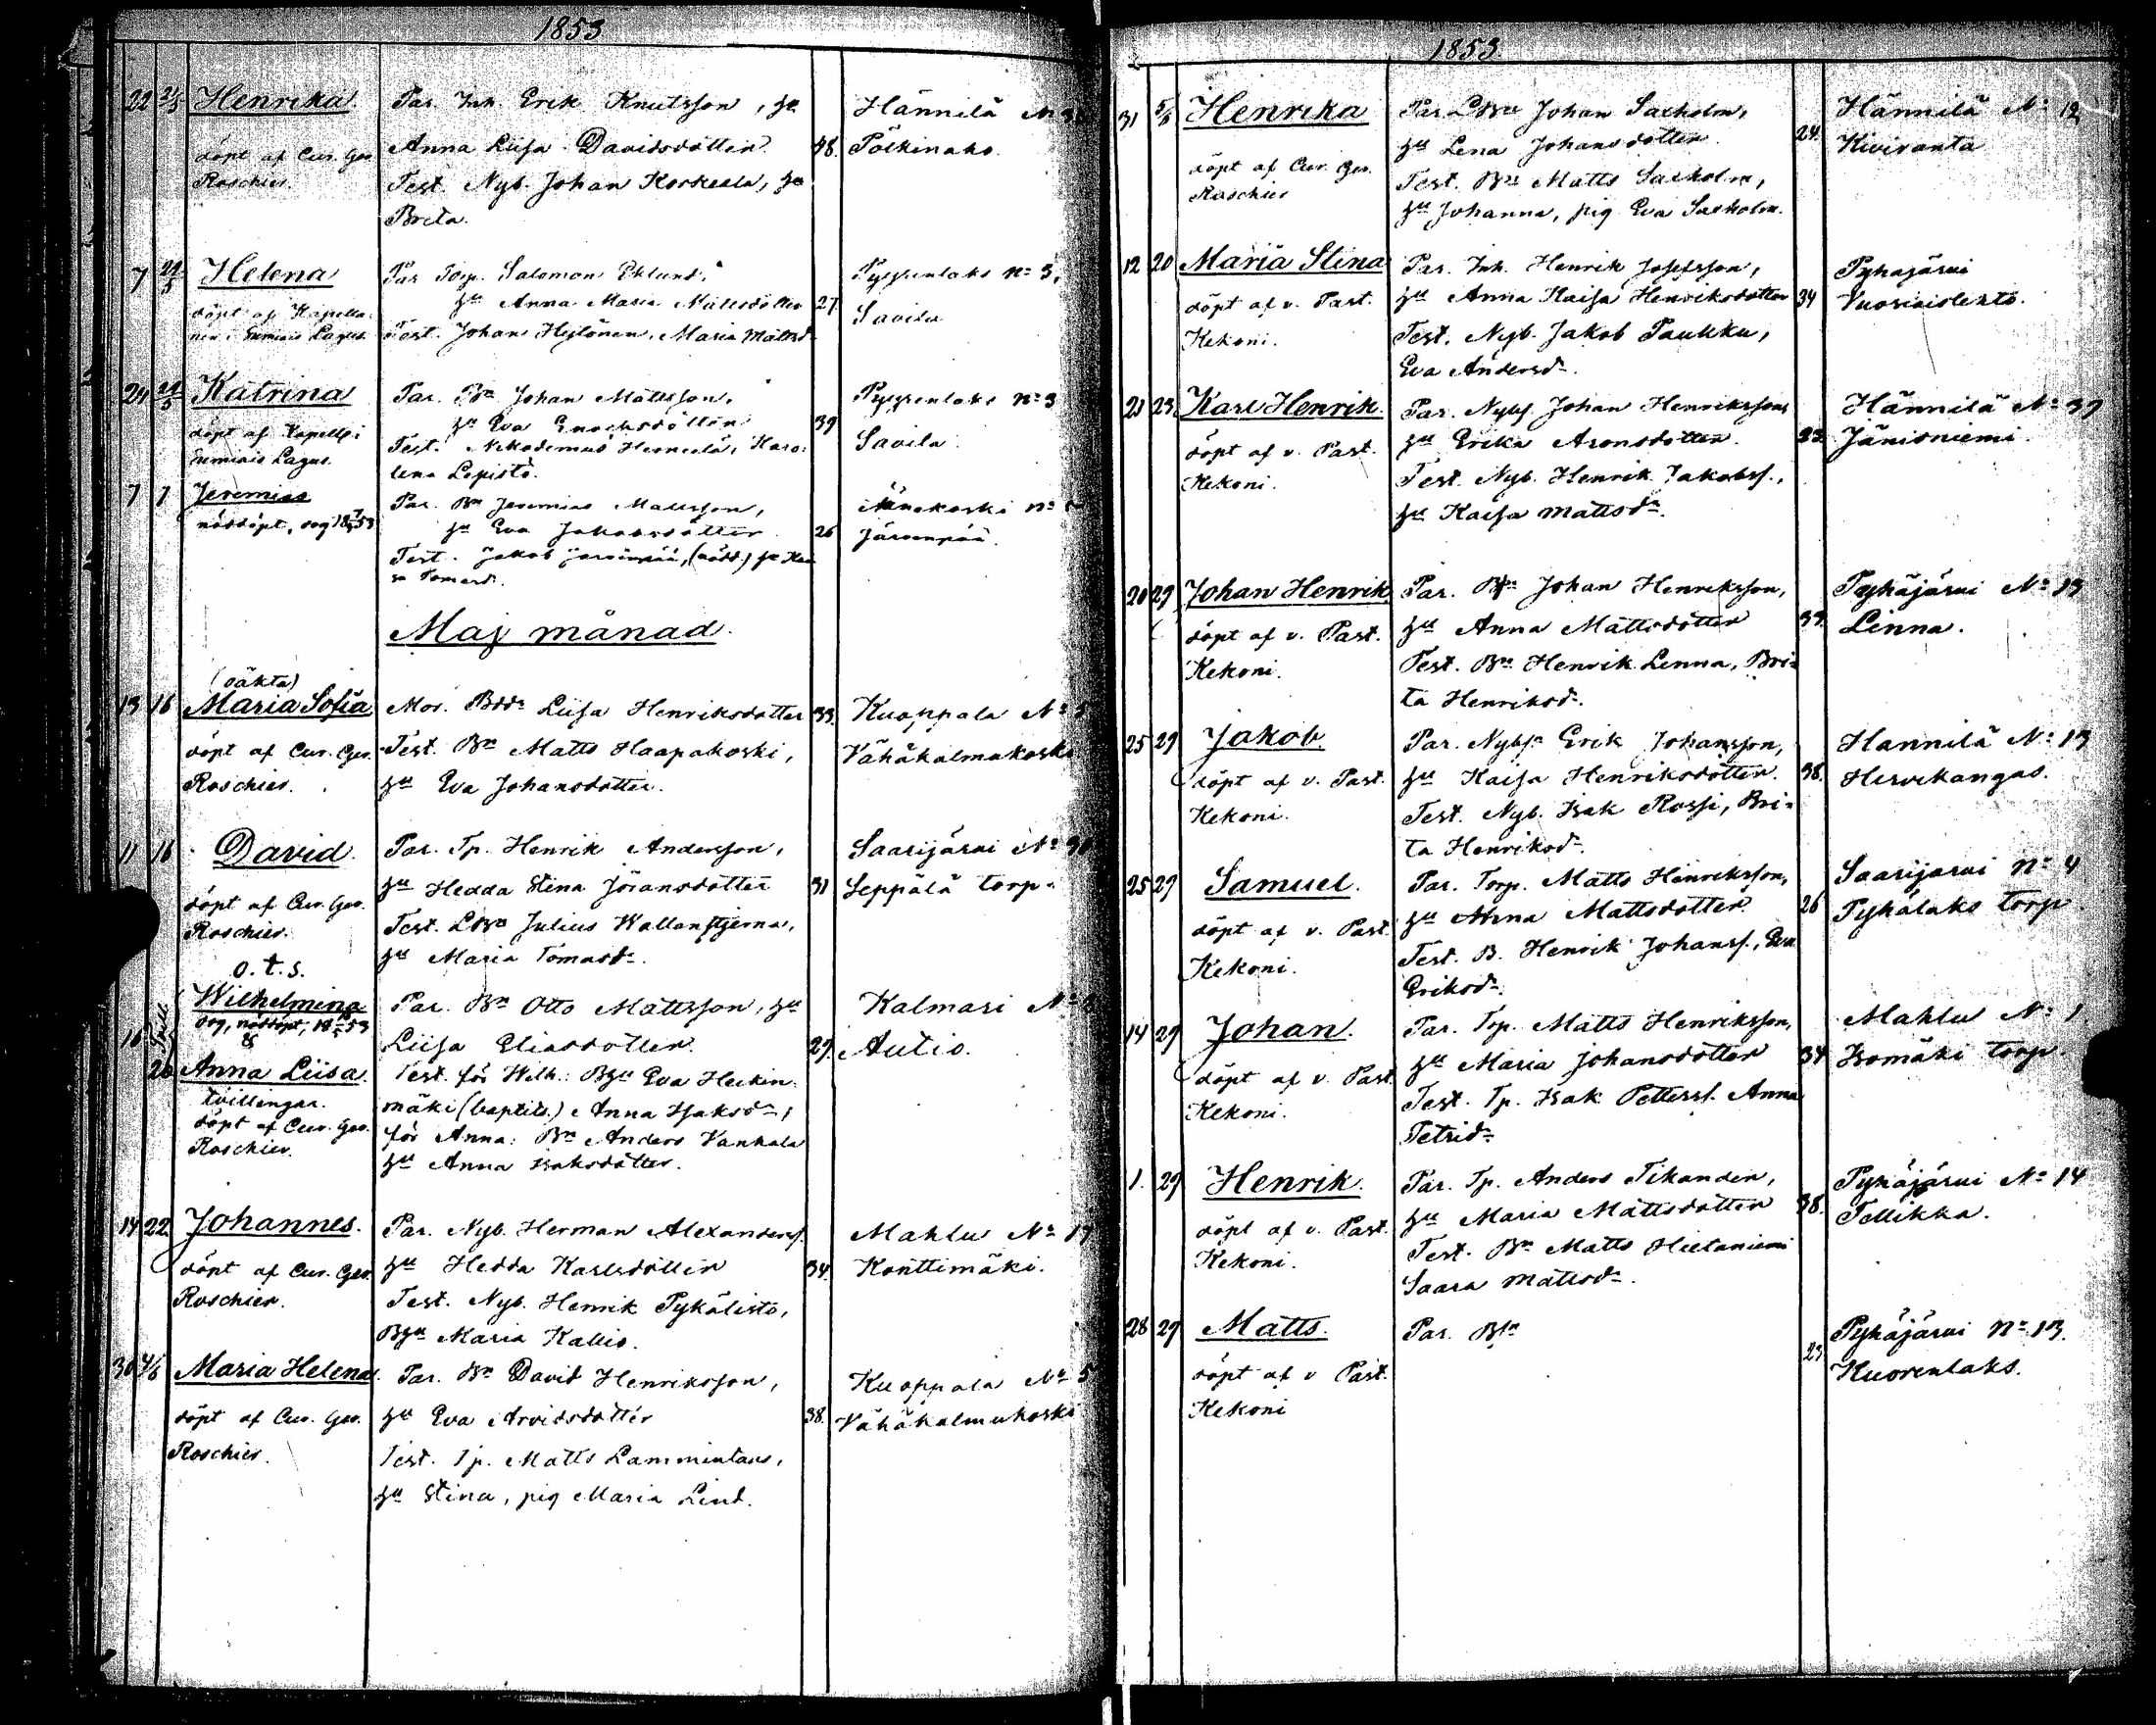 1853
22 21/5 Henrika. Par. Inh. Erik Knutsson, hu
döpt af Cur. Geo. Roschier.
Anna Liisa Davidsdotter 48.
Test. Nyb. Johan Korkeela, hu
Breta.
Hännilä No
Pölkinaho
7 29/5 Helena
döpt af Kapella-
nen i Sumiais Lagus.
Par Torp. Salomon Eklund,
hu Anna Maria Mattsdotter 27.
Test. Johan Hytönen, Maria Mattsd.
Pyyrinlaks No 3,
Savila
24 29/5 Katrina
döpt af Kapell. i
Sumiais Lagus.
Par. Bn Johan Mattsson,
hu Eva Enochsdotter 39
Test. Nikodemus Herneelä, Karo-
lina Lepistö.
Pyyrinlaks No 3
Savila.
7 7 Jeremias
nöddöpt, dog 18 53
Par. Bn Jeremias Matsson,
hu Eva Jakobsdotter 26
Test. Jakob Järvinpää, (nödd) hu Kai
sa Tomasd.
Äänekoski No
Järvenpää.
Maj månad.
(oäkta)
13 16 Maria Sofia
döpt af Cur. Geo.
Roschier.
Mor. Bdr Liisa Henriksdotter 33.
Test. Bn Matts Haapakoski,
hu Eva Johansdotter.
Kuoppala No 5
Vähäkalmukoski
11 16 David.
döpt af Cur. Geo.
Roschier.
Par. Tp. Henrik Andersson,
hu Hedda Stina Jöransdotter 31
Test. LBn Julius Wallenstjerna,
hu Maria Tomasdr.
Saarijärvi No
Seppälä torp.
o. t. s.
Wilhelmina
dog, nöddöpt, 18 53
&
16 26 Anna Liisa.
tvillingar.
döpt af Cur. Geo.
Roschier.
Par. Bn Otto Mattsson, hu
Liisa Eliasdotter. 29.
Test. för Wilh.: Bhu Eva Heikin-
mäki (baptiz.) Anna Isaksdr,
för Anna: Bn Anders Vanhala
hu Anna Isaksdotter.
Kalmari No
Autio.
14 22 Johannes.
döpt af Cur. Geo.
Roschier.
Par. Nyb. Herman Alexanders.
hu Hedda Karlsdotter 34.
Test. Nyb. Henrik Pykälistö,
Bhu Maria Kallio.
Mahlu No 17
Konttimäki.
30 4/6 Maria Helena.
döpt af Cur. Geo.
Roschier.
Par. Bn David Henriksson,
hu Eva Arvidsdotter 38.
Test. Tp. Matts Lammintaus,
hu Stina, pig Maria Lind.
Kuoppala No 5
Vähäkalmukoski
1853.
31 5/6 Henrika
döpt af Cur. Geo.
Roschier
Par. LBn Johan Saxholm,
hu Lena Johansdotter. 24.
Test. Bn Matts Saxholm,
hu Johanna, pig Eva Saxholm.
Hännilä No 12
Kiviranta
12 20 Maria Stina
döpt af v. Past.
Kekoni.
Par. Inh. Henrik Josefsson,
hu Anna Kaisa Henriksdotter 34
Test. Nyb. Jakob Pauhku,
Eva Andersdr.
Pyhäjärvi
Vuosiaislehto.
21 23 Karl Henrik.
döpt af v. Past.
Kekoni.
Par. Nybs. Johan Henriksson,
hu Erika Aronsdotter.
Test. Nyb. Henrik Jakobss.,
hu Kaisa Mattsdr.
Hännilä No 37
Jänisniemi.
20 29 Johan Henrik.
döpt af v. Past.
Kekoni.
Par. Bsn Johan Henriksson,
hu Anna Mattsdotter 33.
Test. Bn Henrik Lenna, Bri-
ta Henriksdr.
Pyhäjärvi No 13
Lenna.
25 29 Jakob
döpt af v. Past.
Kekoni.
Par. Nybsn Erik Johansson,
hu Kaisa Henriksdotter. 38.
Test. Nyb. Isak Rossi, Bri-
ta Henriksdr.
Hannilä No 13
Hirvikangas.
25 29 Samuel.
döpt af v. Past.
Kekoni.
Par. Torp. Matts Hinriksson,
hu Anna Mattsdotter 26
Test. B. Henrik Johanss., Eva
Eriksdr.
Saarijarvi No 4
Pykälaks torp.
14 29 Johan.
döpt af v. Past.
Kekoni.
Par. Trp. Matts Henriksson,
hu Maria Johansdotter 34
Test. Tp. Isak Petterss. Anna
Petridr
Mahlu No 1
Isomäki torp.
1. 29 Henrik.
döpt af v. Past.
Kekoni.
Par. Tp. Anders Tikander,
hu Maria Mattsdotter 38.
Test. Bn Matts Hietaniemi
Saara Mattsdr.
Pyhäjärvi No 14
Tellikka.
28 29 Matts.
döpt af v Past.
Kekoni
Par. Bsn
23.
Pyhäjärvi No 13.
Kuorenlaks.